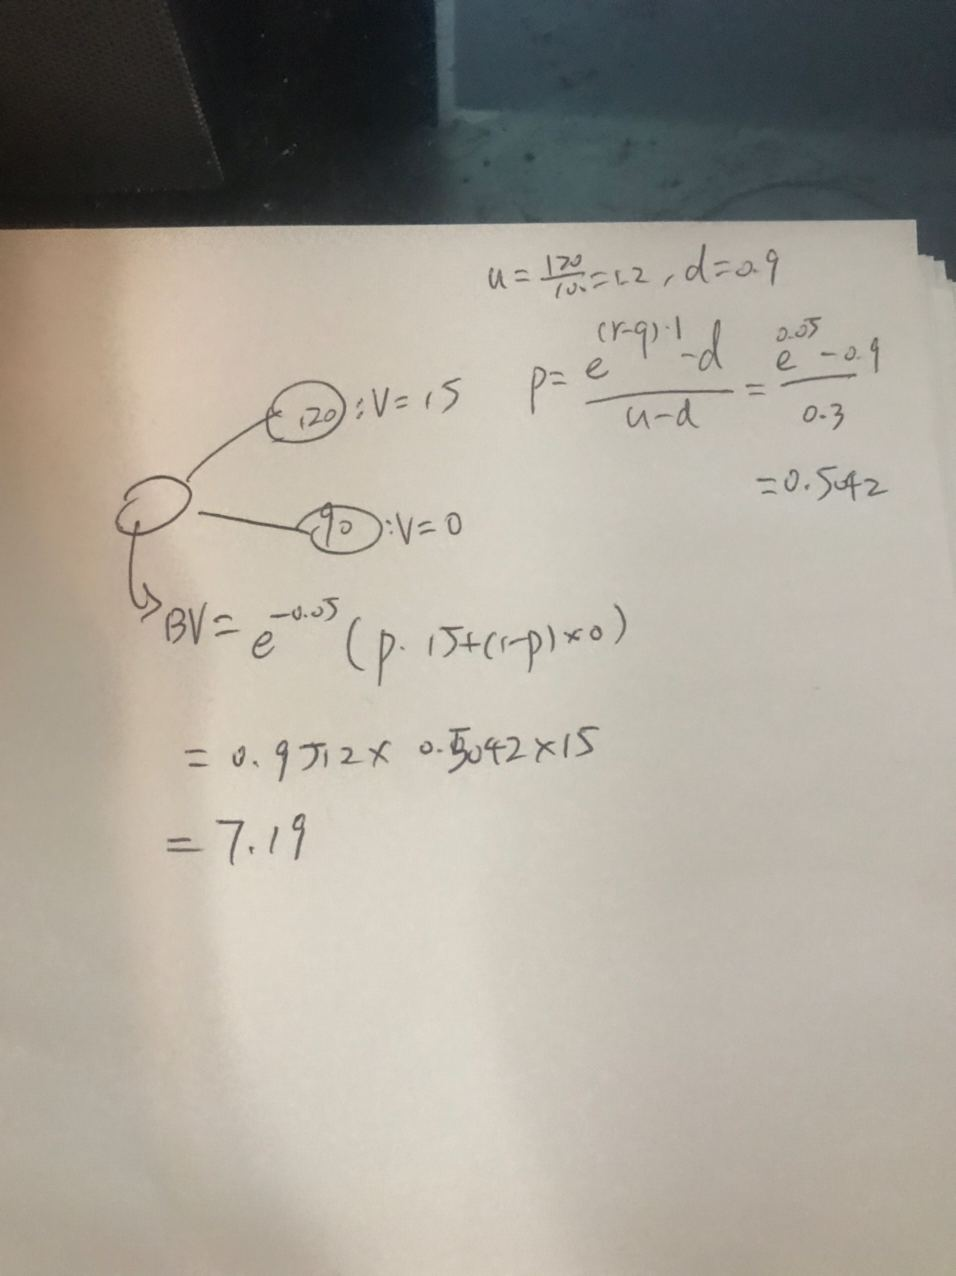 u = 120/100 = 1.2 , d = 0.9
p = (e^{(r-q)·1} - d)/(u-d) = (e^{0.05} - 0.9)/0.3
= 0.5042
120 : V = 15
90 : V = 0
BV = e^{-0.05} (p · 15 + (1-p) × 0)
= 0.9512 × 0.5042 × 15
= 7.19